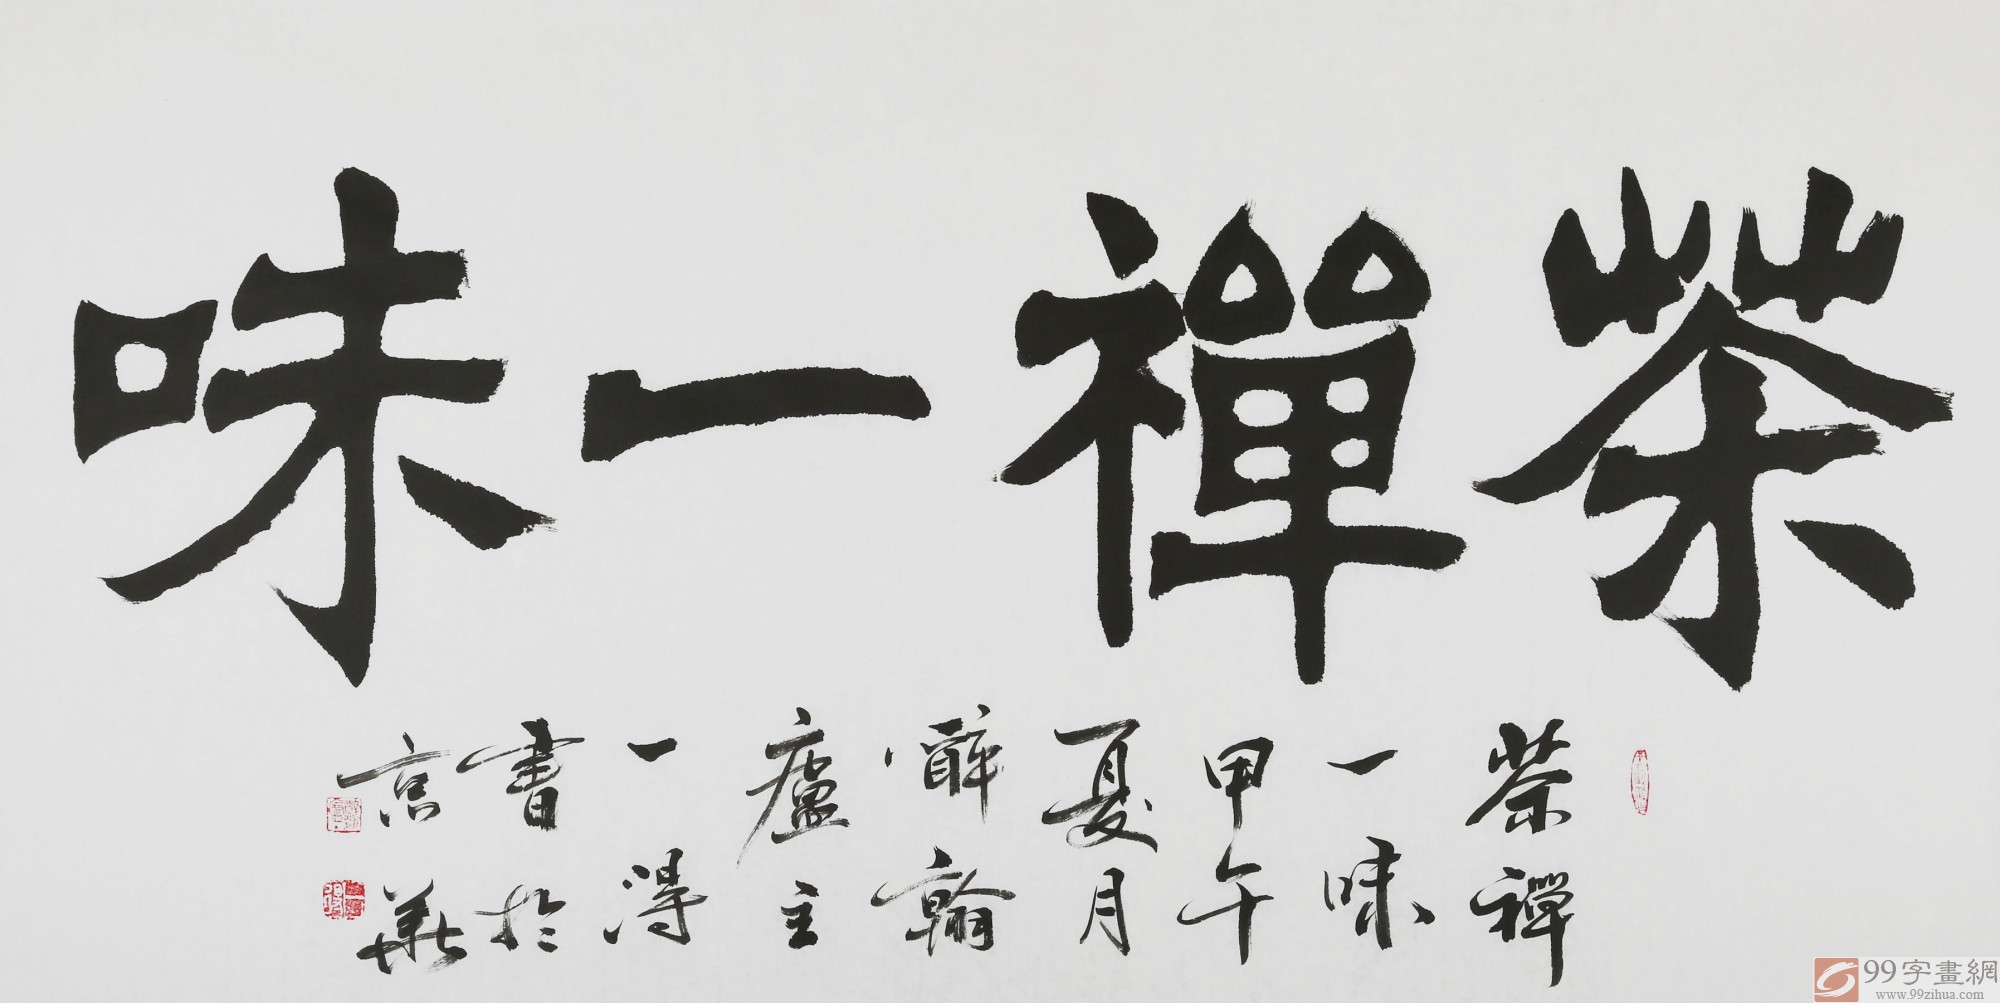 茶禪一味
茶禪
一味
甲午
夏月
醉翰
廬主
一得
書於
京華
99字畫網
www.99zihua.com